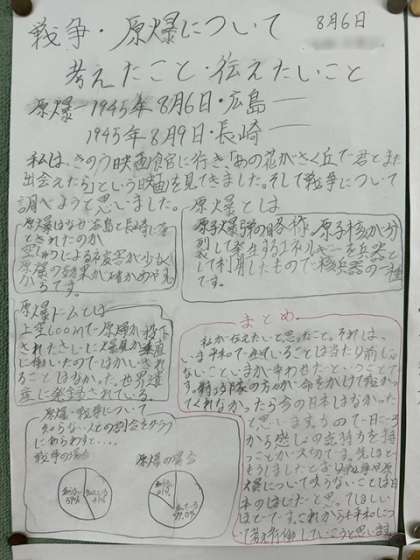 戦争・原爆について
8月6日
考えたこと・伝えたいこと
原爆ー1945年8月6日・広島ー
1945年8月9日・長崎ー
私は、きのう映画館に行き「あの花がさく丘で君とまた
出会えたら」という映画を見てきました。そして戦争について
調べようと思いました。
原爆はなぜ広島と長崎に落
とされたのか
空しゅうによる被害が少なく
原爆の効果が確かめやすい
からです。
原爆とは
原子爆弾の略称。原子核が分
裂して発生するエネルギーを兵器と
して利用したもので核兵器の一種
です
原爆ドームとは
上空600mで原爆が投下
されたさいに
に働いたのでほかいされ
ることはなかった。世界遺
産に発録されている。
原爆・戦争について
知らない人との割合をグラフ
にあらわすと…
戦争の場合
原爆の場合
まとめ
私が伝えたいと思ったこと。それは、
いま平和で生きていることは当たり前じゃ
ないこといまが幸わせだということで
す。特攻隊の方々が命をかけて
てくれなかったら今の日本はなかった
と思いますもので一日一日
から感しゃの気持ちを持
つことが大切です。
原爆について
本のはじだと思ってほしい
ほどです。これからも平和につい